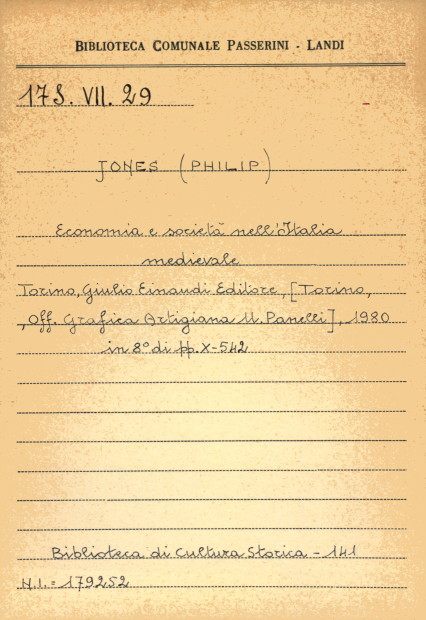 BIBLIOTECA COMUNALE PASSERINI - LANDI
17S. VII. 29
JONES (PHILIP)
Economia e società nell'Italia
medievale
Torino, Giulio Einaudi Editore, [Torino,
, Off. Grafica Artigiana U. Panelli], 1980
in 8° di pp. X-542
Biblioteca di Cultura Storica - 141
N.I. = 179252